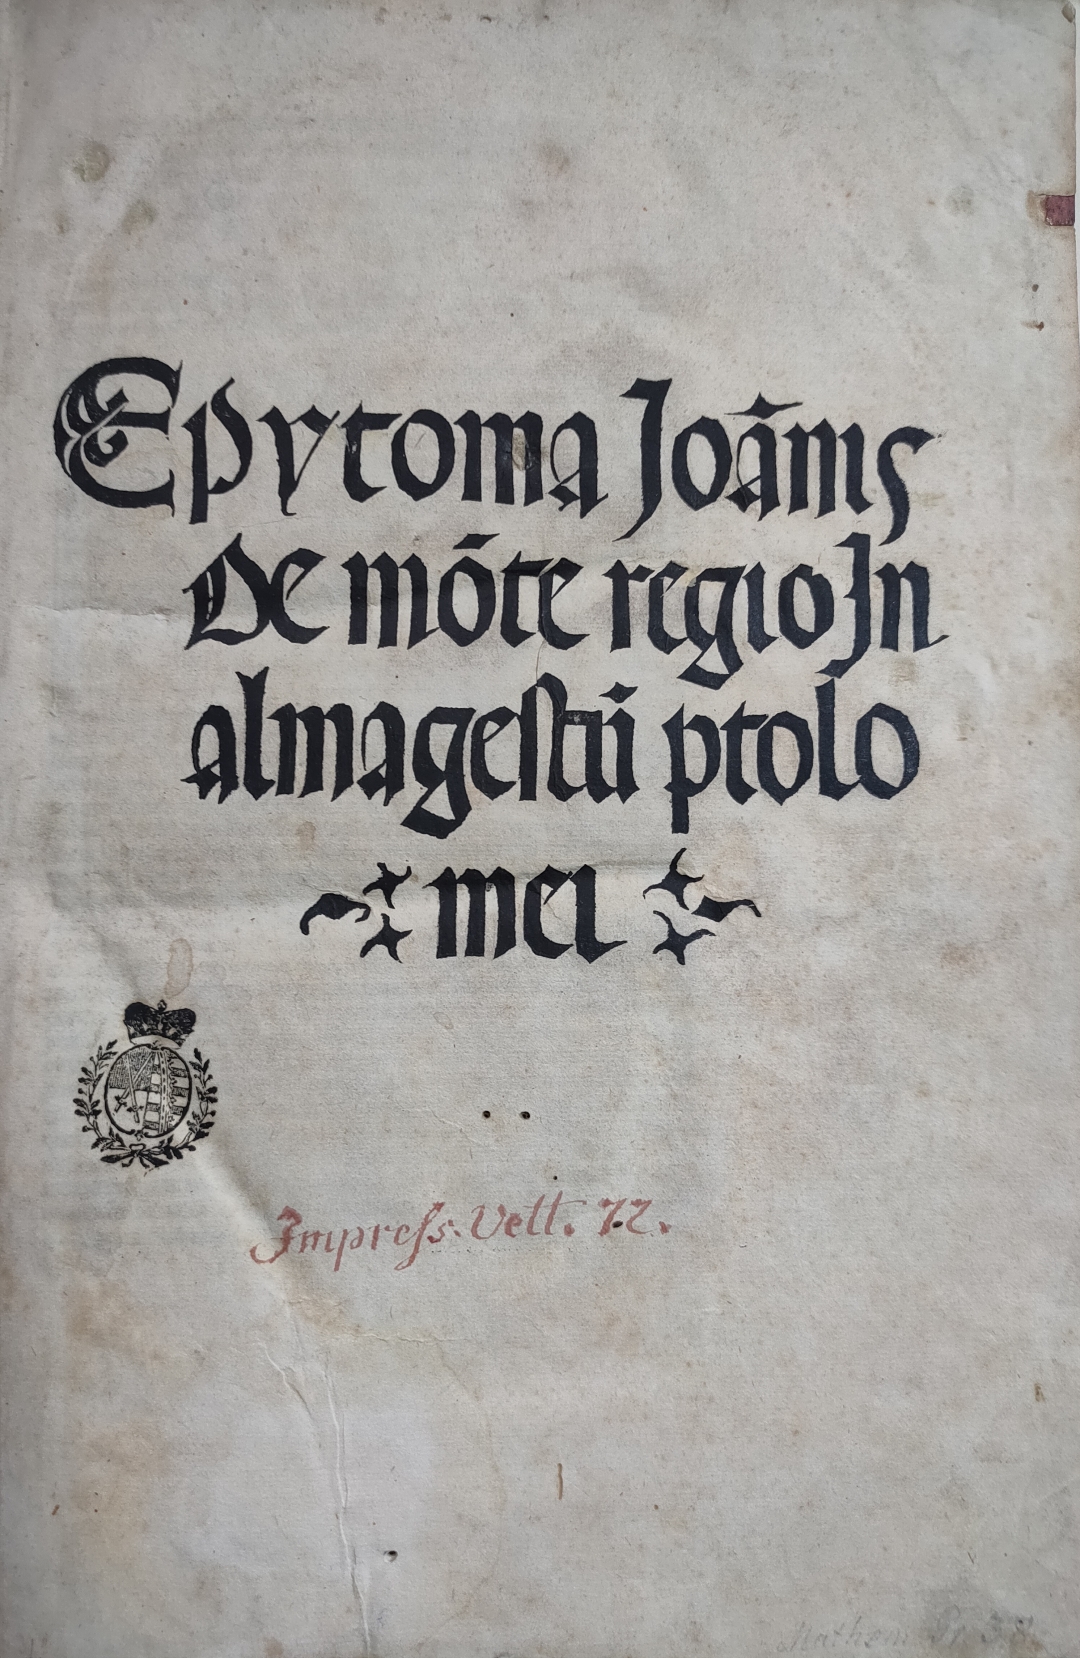 Epytoma Joānis
De mōte regio In
almagestū ptolo
mei
Impress. Vett. 72.
Mathem